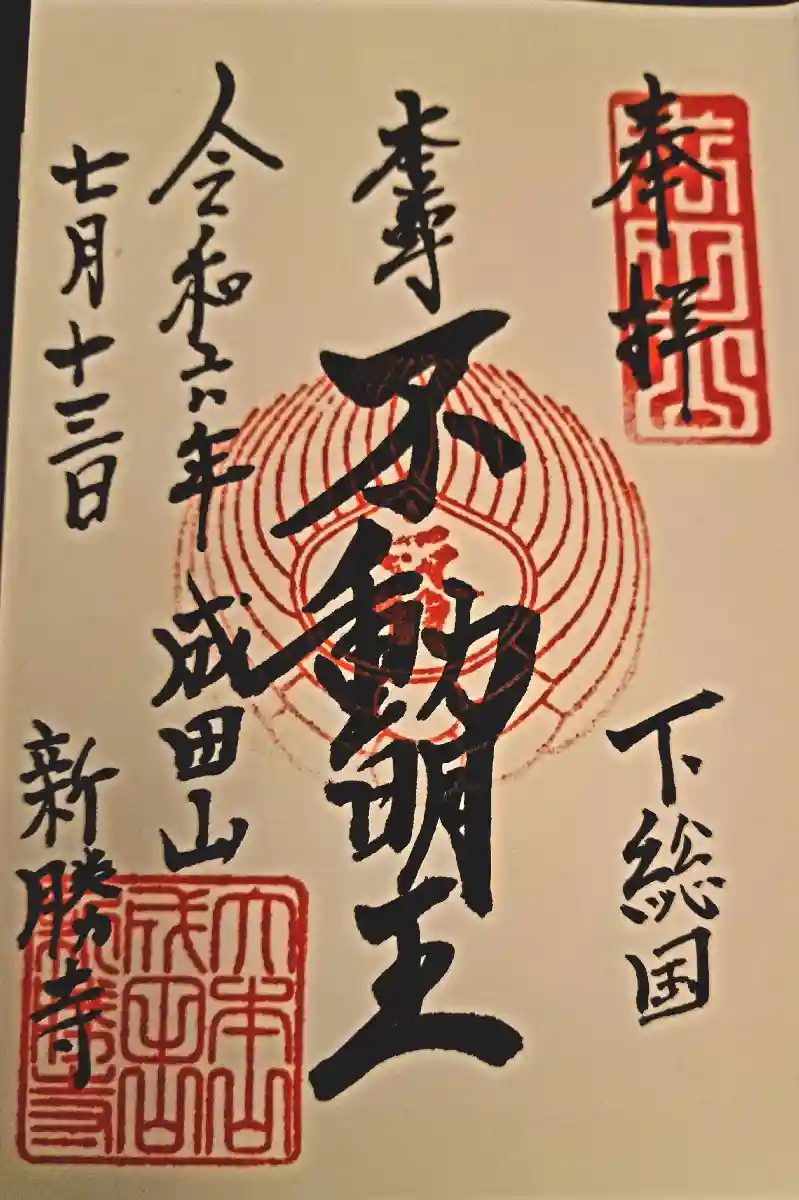 奉拝
下総国
本尊
不動明王
令和六年
成田山
七月十三日
新勝寺
大本山
成田山
新勝寺